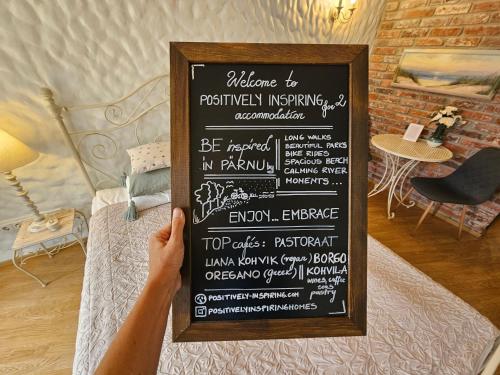 Welcome to
POSITIVELY INSPIRING for 2
accommodation
BE inspired
IN PÄRNU
LONG WALKS
BEAUTIFUL PARKS
BIKE RIDES
SPACIOUS BEACH
CALMING RIVER
MOMENTS ...
ENJOY... EMBRACE
TOP cafés: PASTORAAT
LIANA KOHVIK (vegan) BORGO
OREGANO (greek) KOHVILA
wines, coffee
cakes
pastry
POSITIVELY-INSPIRING.COM
POSITIVELYINSPIRINGHOMES